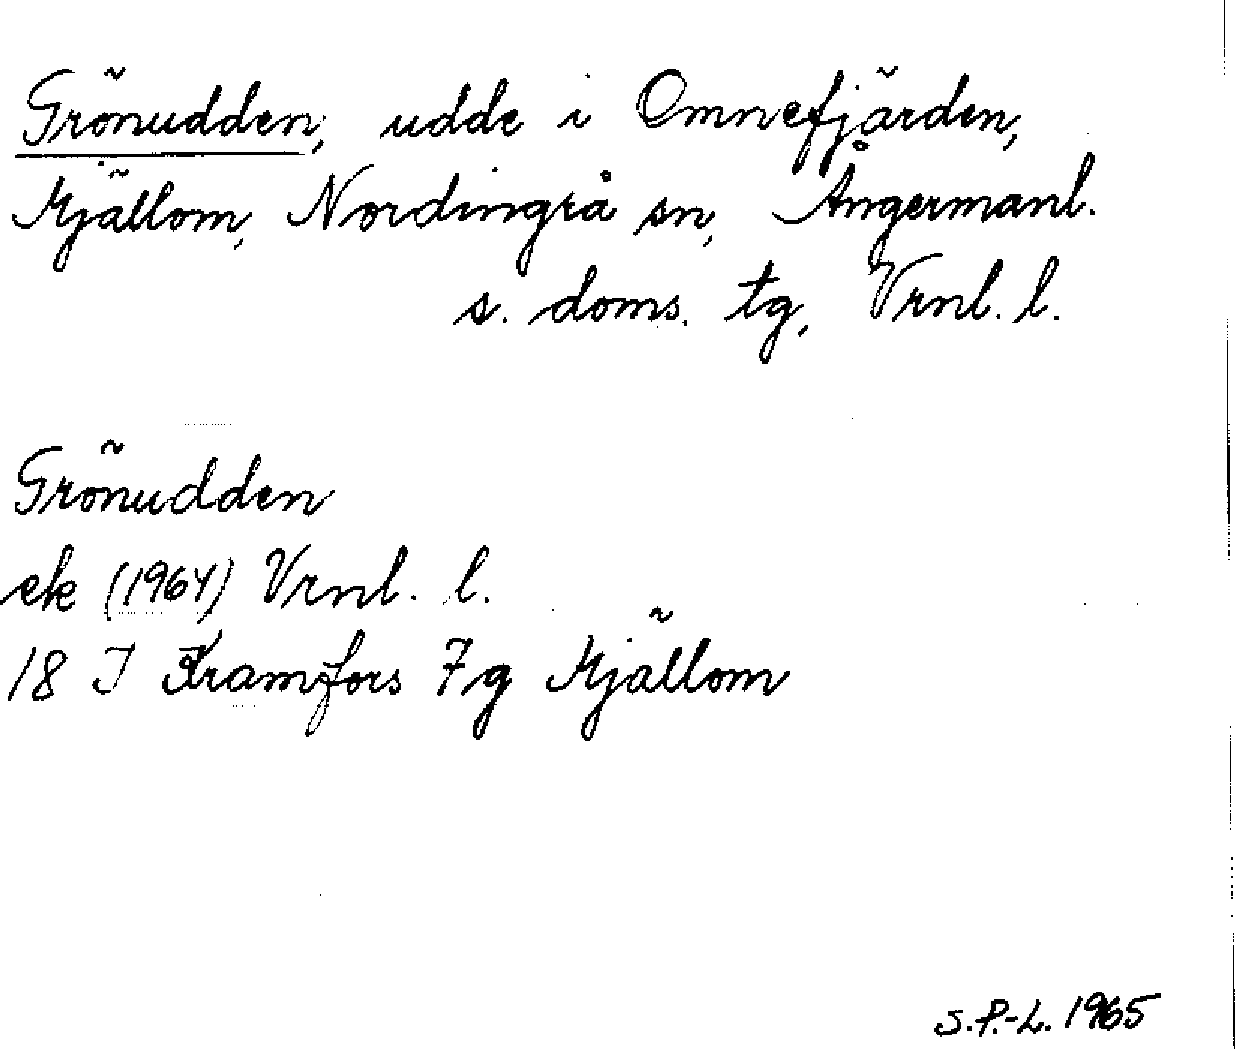 Grönudden, udde i Omnefjärden,
Mjällom, Nordingrå sn, Ångermanl.
s. doms. tg, Vrnl. l.
Grönudden
ek (1964) Vrnl. l.
18 I Kramfors 7g Mjällom
S.P.-L. 1965